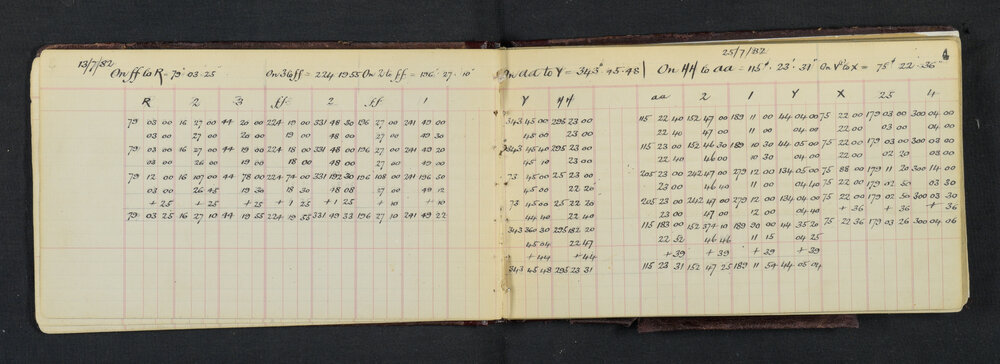 13/7/82
On ff to R = 79° 03' 25" On 3 to ff = 224 19 55 On 2 to ff = 196° 27' 10"
R 2 3 ff 2 ff 1
79 03 00 16 27 00 44 20 00 224 19 00 331 48 30 196 27 00 241 49 00
03 00 27 00 20 00 19 00 48 00 27 00 49 30
79 03 00 16 27 00 44 19 00 224 18 00 331 48 00 196 27 00 241 49 20
03 00 26 00 19 00 18 00 48 00 27 00 49 00
79 12 00 16 107 00 44 78 00 224 74 00 331 192 30 196 108 00 241 196 50
03 00 26 45 19 30 18 30 48 08 27 00 49 12
+ 25 + 25 + 25 + 1 25 + 1 25 + 10 + 10
79 03 25 16 27 10 44 19 55 224 19 55 331 49 33 196 27 10 241 49 22
25/7/82
4
On aa to Y = 343° 45' 48" On HH to aa = 115° 23' 31" On Y to X = 75° 22' 36"
Y HH aa 2 1 Y X 25 4
343 45 00 295 23 00 115 22 40 152 47 00 189 11 00 44 04 00 75 22 00 179 03 00 300 04 00
45 00 23 00 22 40 47 00 11 00 04 00 22 00 03 00 04 00
343 45 40 295 23 00 115 23 00 152 46 30 189 10 30 44 05 00 75 22 00 179 03 00 300 03 00
45 10 23 00 22 40 46 00 10 30 04 00 22 00 02 20 03 00
73 45 00 25 23 00 205 23 00 242 47 00 279 12 00 134 05 00 75 88 00 179 11 20 300 14 00
45 00 22 20 23 00 46 40 11 00 04 40 75 22 00 179 02 50 03 30
73 45 00 25 22 20 205 23 00 242 47 00 279 12 00 134 04 00 75 22 00 179 02 50 300 03 30
44 40 22 40 23 00 47 00 12 00 04 40 + 36 + 36 + 36
343 360 30 295 182 20 115 183 00 152 374 10 189 90 00 44 35 20 75 22 36 179 03 26 300 04 06
45 04 22 47 22 52 46 46 11 15 04 25
+ 44 + 44 + 39 + 39 + 39 + 39
343 45 48 295 23 31 115 23 31 152 47 25 189 11 54 44 05 04